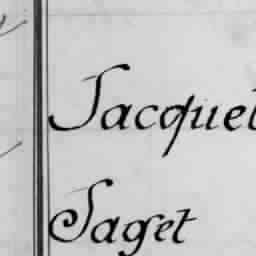 Jacquet
Saget